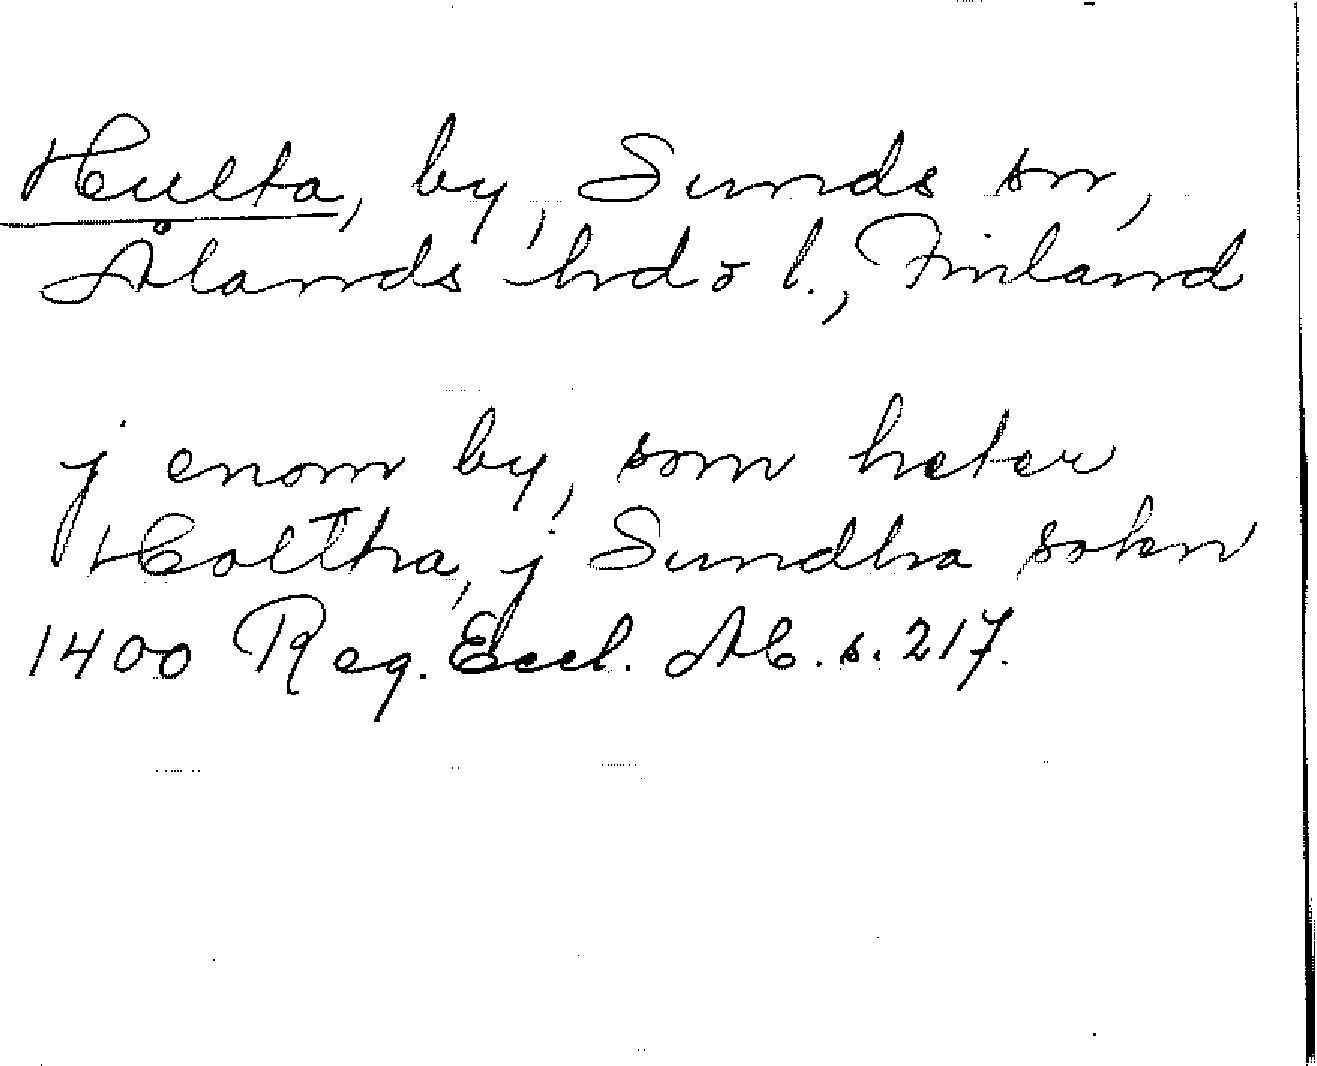 Hulta, by, Sunds sn,
Ålands hd o l., Finland
j enom by, som heter
Holtha, j Sundha sokn
1400 Reg. Eccl. Ab. s. 217.